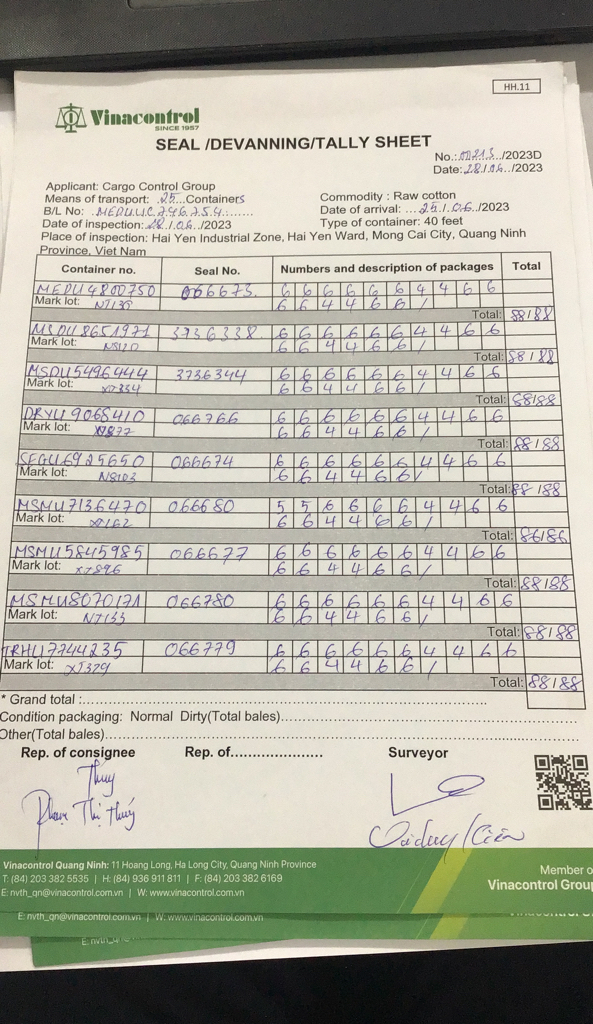 HH.11
Vinacontrol
SINCE 1957
SEAL /DEVANNING/TALLY SHEET
No.:00213../2023D
Date:28./06../2023
Applicant: Cargo Control Group
Means of transport: .25...Containers
Commodity : Raw cotton
B/L No: .MEDUUC746754.......
Date of arrival: ...25./.06../2023
Date of inspection:28./.06./2023
Type of container: 40 feet
Place of inspection: Hai Yen Industrial Zone, Hai Yen Ward, Mong Cai City, Quang Ninh
Province, Viet Nam
Container no. Seal No. Numbers and description of packages Total
MEDU4800750 066673. 6 6 6 6 6 6 4 4 6 6
Mark lot: NJ139 6 6 4 4 6 6 /
Total: 88/88
MSDU8651971 3736338 6 6 6 6 6 6 4 4 6 6
Mark lot: 6 6 4 4 6 6 /
Total: 88/88
MSDU5496444 3736344 6 6 6 6 6 6 4 4 6 6
Mark lot: 6 6 4 4 6 6 /
Total: 88/88
DRYU9065410 066766 6 6 6 6 6 6 4 4 6 6
Mark lot: 6 6 4 4 6 6 /
Total: 88/88
SEGU6925650 066674 6 6 6 6 6 6 4 4 6 6
Mark lot: N8103 6 6 4 4 6 6 /
Total: 88/88
MSMU7136470 066680 5 5 6 6 6 6 4 4 6 6
Mark lot: 6 6 4 4 6 6 /
Total: 86/86
MSMU5845985 066677 6 6 6 6 6 6 4 4 6 6
Mark lot: XJ896 6 6 4 4 6 6 /
Total: 88/88
MSMU8070171 066780 6 6 6 6 6 6 4 4 6 6
Mark lot: NJ133 6 6 4 4 6 6 /
Total: 88/88
TRHU7744235 066779 6 6 6 6 6 6 4 4 6 6
Mark lot: XJ329 6 6 4 4 6 6 /
Total: 88/88
* Grand total :..........................................................................
Condition packaging: Normal Dirty(Total bales)..........................................................
Other(Total bales)..........................................................................
Rep. of consignee Rep. of..................... Surveyor
Thúy
Phạm Thị Thúy
Vinacontrol Quang Ninh: 11 Hoang Long, Ha Long City, Quang Ninh Province
T: (84) 203 382 5535 | H: (84) 936 911 811 | F: (84) 203 382 6169
E: nvth_qn@vinacontrol.com.vn | W: www.vinacontrol.com.vn
Member o
Vinacontrol Group
E: nvth_qn@vinacontrol.com.vn | W: www.vinacontrol.com.vn